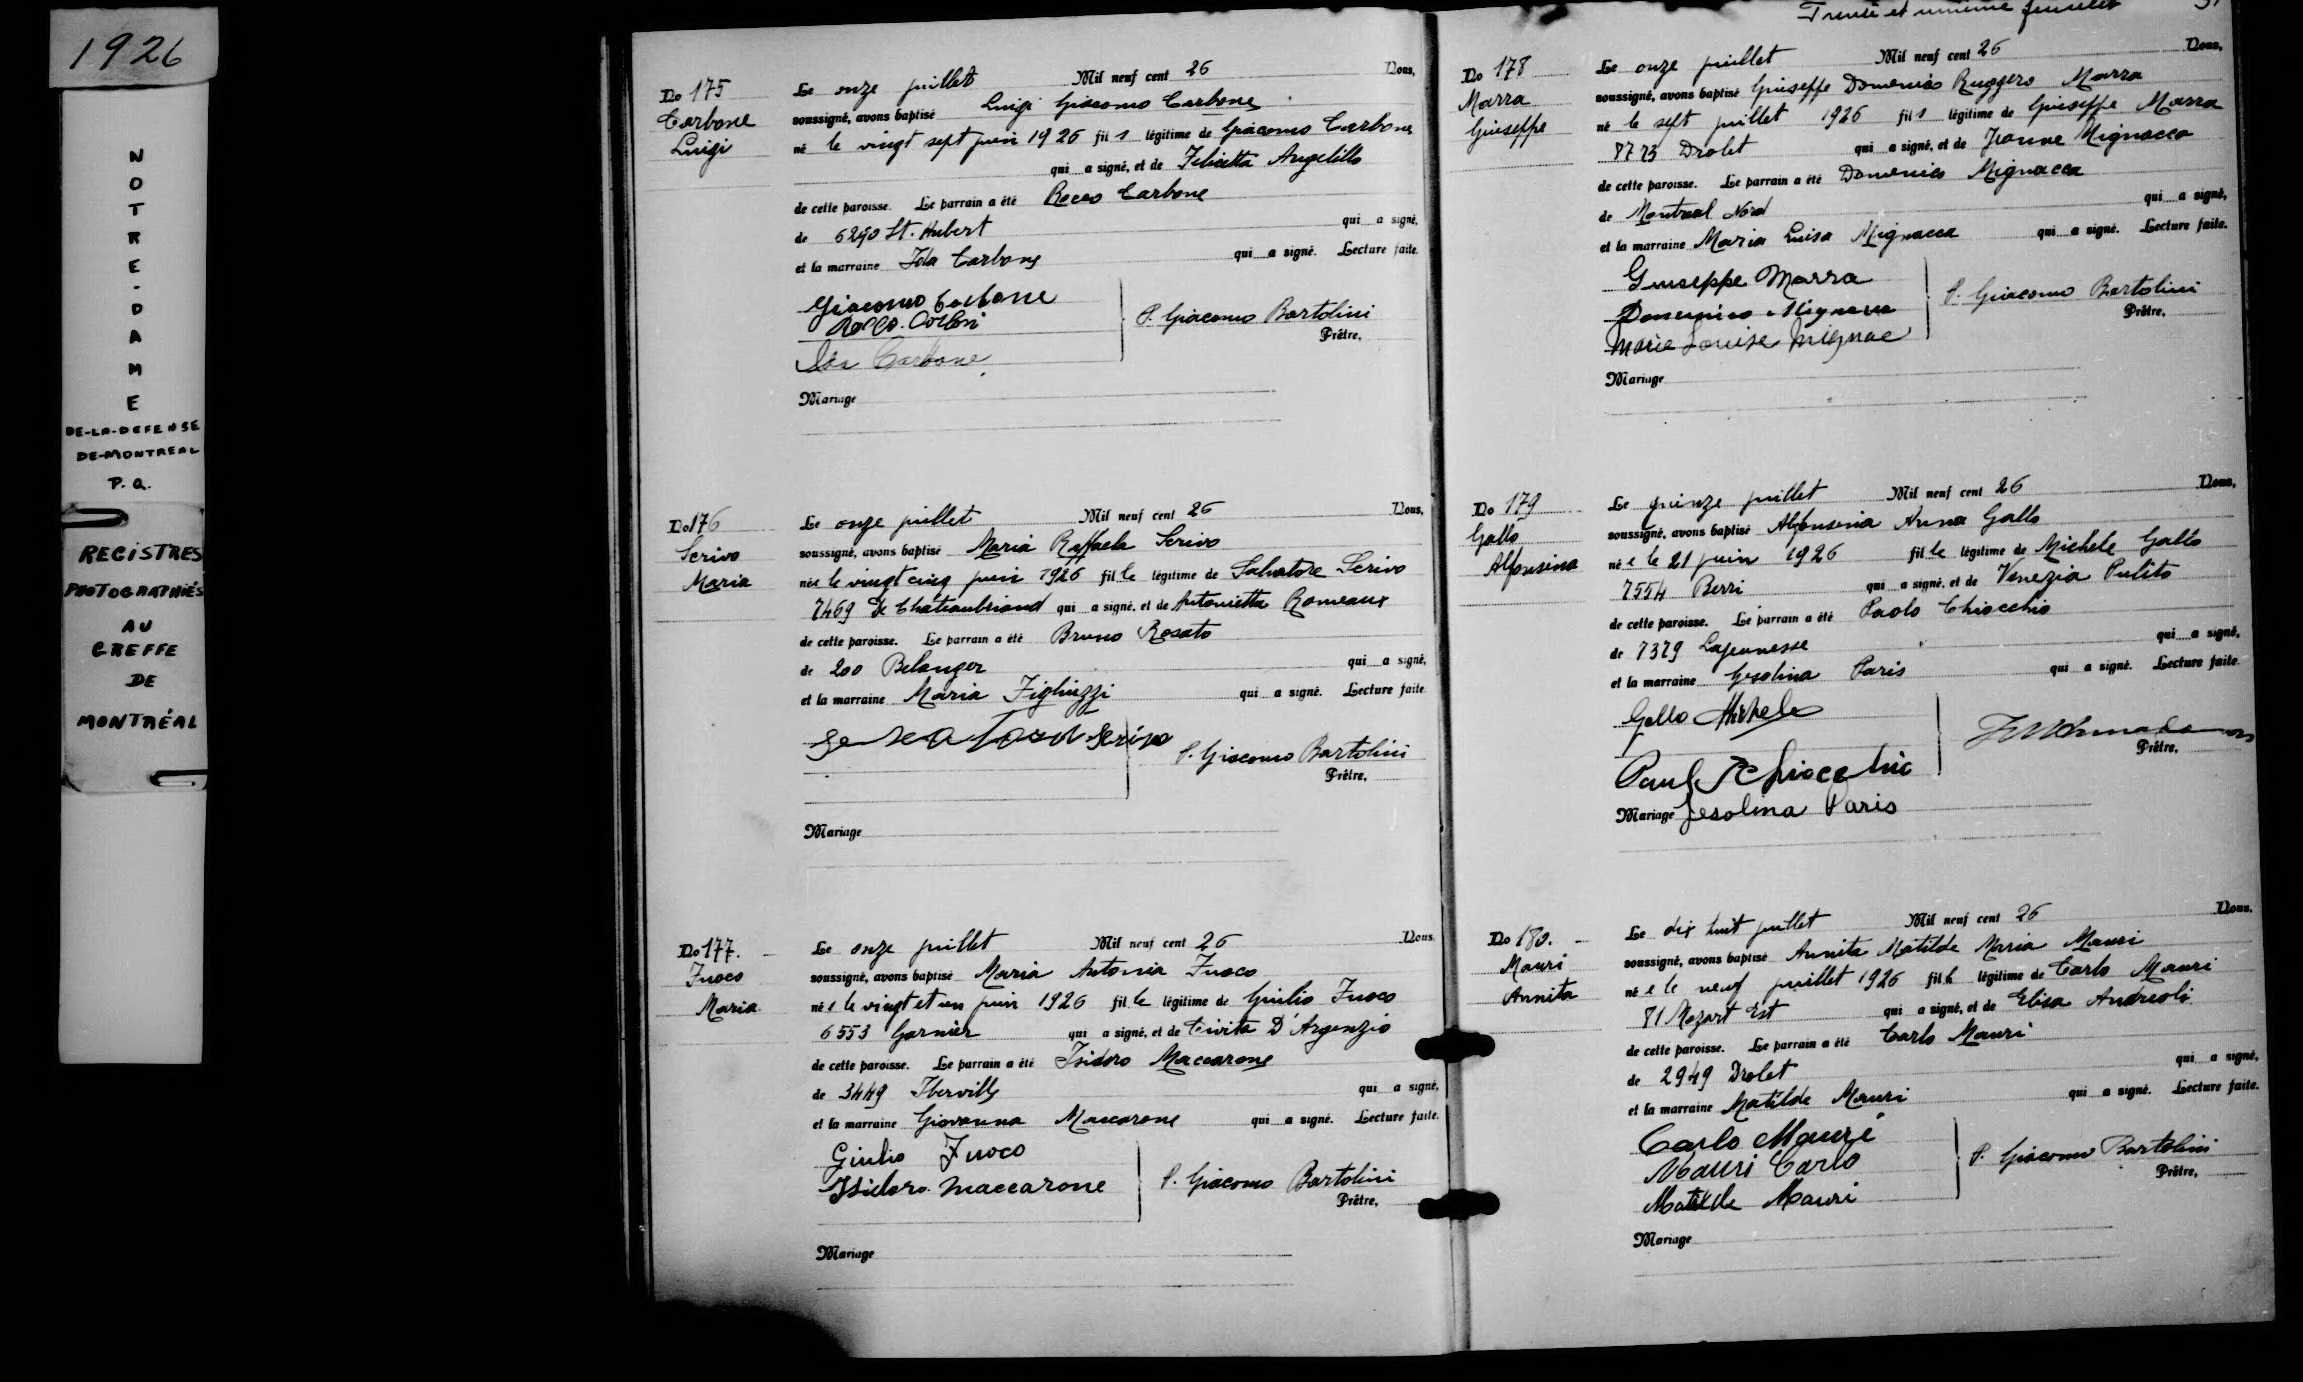 1926
NOTRE-DAME
DE-LA-DEFENSE
DE-MONTREAL
P.Q.
REGISTRES
PHOTOGRAPHIÉS
AU
GREFFE
DE
MONTRÉAL
No 175
Carbone
Luigi
Le onze juillet Mil neuf cent 26 Nous,
soussigné, avons baptisé Luigi Giacomo Carbone
né le vingt sept juin 1926 fil s légitime de Giacomo Carbone
qui a signé, et de Felicetta Angelillo
de cette paroisse. Le parrain a été Rocco Carbone
de 6290 St. Hubert qui a signé,
et la marraine Ida Carbone qui a signé. Lecture faite.
Giacomo Carbone
Rocco
Ida Carbone
P. Giacomo Bartolini
Prêtre,
Mariage
No 176
Scrivo
Maria
Le onze juillet Mil neuf cent 26 Nous,
soussigné, avons baptisé Maria Raffaela Scrivo
née le vingt cinq juin 1926 fil le légitime de Salvatore Scrivo
7469 De Chateaubriand qui a signé, et de Antonietta Romeaux
de cette paroisse. Le parrain a été Bruno Rosato
de 200 Belanger qui a signé,
et la marraine Maria Figliuzzi qui a signé. Lecture faite
Scrivo
P. Giacomo Bartolini
Prêtre,
Mariage
No 177.
Fuoco
Maria
Le onze juillet Mil neuf cent 26 Nous
soussigné, avons baptisé Maria Antonia Fuoco
né e le vingt et un juin 1926 fil le légitime de Giulio Fuoco
6553 Garnier qui a signé, et de Civita D'Argenzio
de cette paroisse. Le parrain a été Isidoro Maccarone
de 3449 Iberville qui a signé,
et la marraine Giovanna Maccarone qui a signé. Lecture faite.
Giulio Fuoco
Isidoro Maccarone
P. Giacomo Bartolini
Prêtre,
Mariage
Trente et unième feuillet 31
No 178
Marra
Giuseppe
Le onze juillet Mil neuf cent 26 Nous,
soussigné, avons baptisé Giuseppe Domenico Ruggero Marra
né le sept juillet 1926 fil s légitime de Giuseppe Marra
8773 Drolet qui a signé, et de Jeanne Mignacca
de cette paroisse. Le parrain a été Domenico Mignacca
de Montreal Nord qui a signé,
et la marraine Maria Luisa Mignacca qui a signé. Lecture faite.
Giuseppe Marra
Domenico Mignacca
Marie Louise Mignac
P. Giacomo Bartolini
Prêtre,
Mariage
No 179
Gallo
Alfonsina
Le quinze juillet Mil neuf cent 26 Nous,
soussigné, avons baptisé Alfonsina Anna Gallo
né e le 21 juin 1926 fil le légitime de Michele Gallo
7554 Berri qui a signé, et de Venezia Pulito
de cette paroisse. Le parrain a été Paolo Chiocchio
de 7329 Lajeunesse qui a signé,
et la marraine Gesolina Paris qui a signé. Lecture faite.
Gallo Michele
Paul Chiocchio
Prêtre,
Mariage Jesolina Paris
No 180.
Mauri
Annita
Le dix huit juillet Mil neuf cent 26 Nous.
soussigné, avons baptisé Annita Matilde Maria Mauri
né e le neuf juillet 1926 fil le légitime de Carlo Mauri
71 Mozart Est qui a signé, et de Elisa Andreoli
de cette paroisse. Le parrain a été Carlo Mauri
de 2949 Drolet qui a signé,
et la marraine Matilde Mauri qui a signé. Lecture faite.
Carlo Mauri
Mauri Carlo
Matilde Mauri
P. Giacomo Bartolini
Prêtre,
Mariage